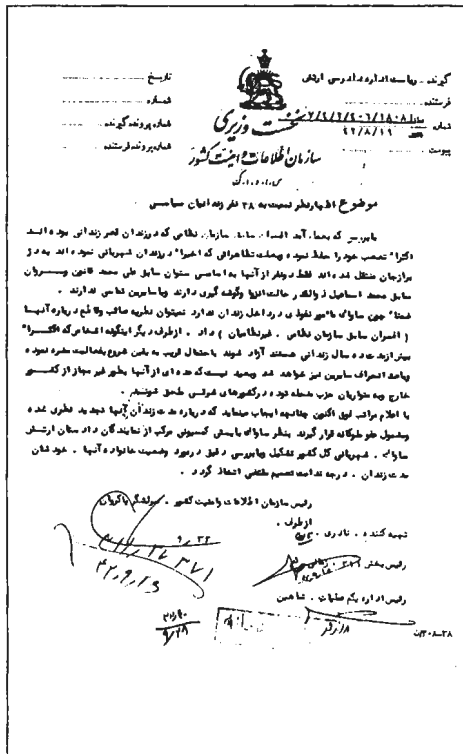 گیرنده - ریاست اداره دادرسی ارتش
فرستنده
شماره
پیوست
تاریخ
شماره
شماره پرونده گیرنده
شماره پرونده فرستنده
نخست وزیری
سازمان اطلاعات و امنیت کشور
س.ا.و.ا.ک
موضوع اظهارنظر نسبت به ۳۸ نفر زندانیان سیاسی
با بررسی که بعمل آمد افسران سابق سازمان نظامی که در زندان قصر زندانی بوده اند
اکثرا" تعصب خود را حفظ نموده و بعلت تظاهراتی که اخیرا" در زندان شهربانی نموده اند به دژ
برازجان منتقل شده اند فقط دو نفر از آنها به اسامی ستوان سابق علی محمد قانون و سروان
سابق محمد اسماعیل ذوالقدر حالت انزوا و گوشه گیری دارند و با سایرین تماسی ندارند .
ضمنا" چون ساواک مامور نفوذی در داخل زندان ندارد نمیتوان نظریه صائب و قاطع درباره آنها
( افسران سابق سازمان نظامی - غیرنظامیان ) داد . از طرف دیگر اینگونه اشخاص که اکثرا"
بیش از مدت ده سال زندانی هستند آزاد شوند با احتمال قریب به یقین شروع بفعالیت مضره نموده
و باعث انحراف سایرین نیز خواهند شد و بعید نیست که عده ای از آنها بطور غیر مجاز از کشور
خارج و به متواریان حزب منحله توده در کشورهای شرقی ملحق شوند .
با اعلام مراتب فوق اکنون چنانچه ایجاب مینماید که درباره مدت زندان آنها تجدید نظری شده
و مشمول عفو ملوکانه قرار گیرند بنظر ساواک بایستی کمیسیونی مرکب از نمایندگان دادستان ارتش
ساواک ، شهربانی کل کشور تشکیل و با بررسی دقیق در مورد وضعیت خانواده آنها ، خودشان
مدت زندان ، درجه ندامت تصمیم مقتضی اتخاذ گردد .
رئیس سازمان اطلاعات و امنیت کشور - سرلشگر پاکروان
از طرف -
تهیه کننده - نادری
رئیس بخش ۳۱۱
رئیس اداره یکم عملیات - شاهین